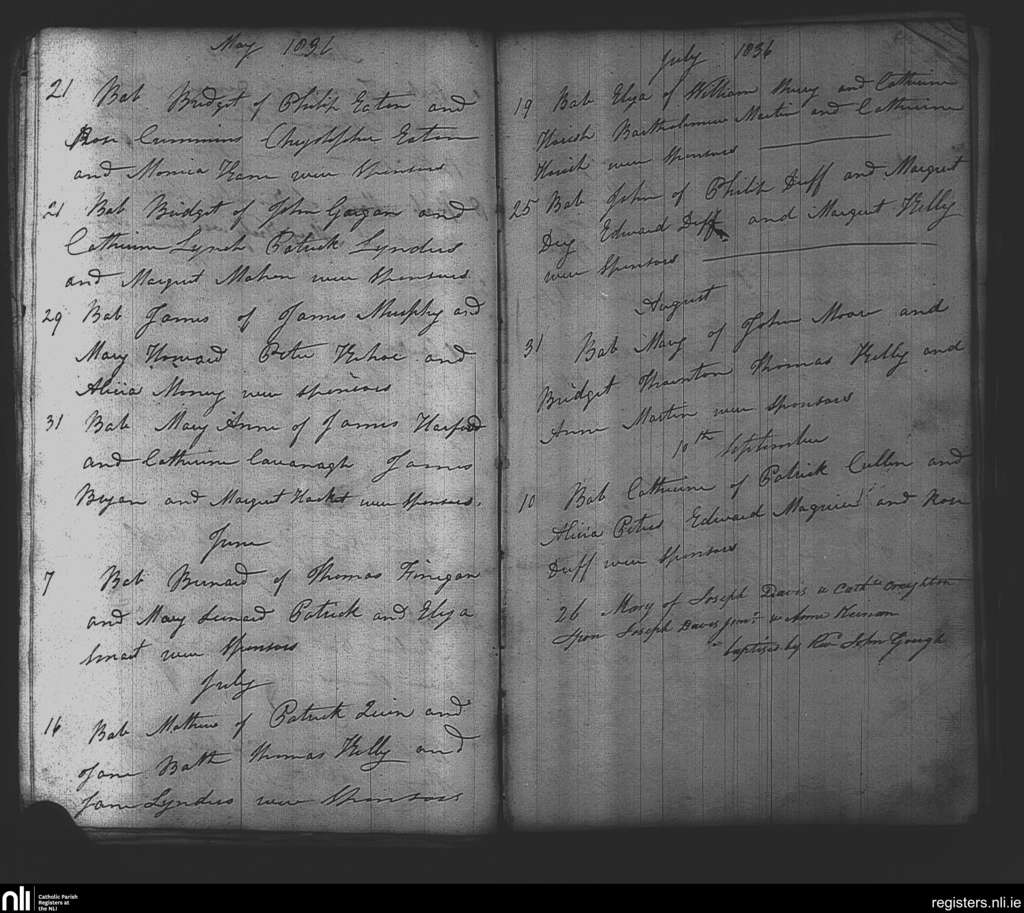 May 1836
21 Bab Bridget of Philip Eaton and
Rose Cummins Chrystopher Eaton
and Monica Kane were Sponsors
21 Bab Bridget of John Gargan and
Catherine Lynch Patrick Lynders
and Margret Mahon were Sponsors
29 Bab James of James Murphy and
Mary Howard Peter Kehoe and
Alicia Money were sponsors
31 Bab Mary Anne of James Harford
and Catherine Cavanagh James
Bryan and Margret Hacket were Sponsors.
June
7 Bab Bernard of Thomas Finegan
and Mary Lenard Patrick and Eliza
Smart were Sponsors
July
16 Bab Mathew of Patrick Quin and
Jane Bath Thomas Kelly and
Jane Lynders were Sponsors
July 1836
19 Bab Eliza of William and Catherine
Bartholomew Martin and Catherine
were Sponsors
25 Bab John of Philip Duff and Margret
Edward Duff and Margret Kelly
were Sponsors
August
31 Bab Mary of John Moore and
Bridget Thornton Thomas Kelly and
Anne Martin were Sponsors
10th September
10 Bab Catherine of Patrick Cullen and
Alicia Peters Edward Maguire and Rose
Duff were Sponsors
26 Mary of Joseph Davis & Cathne Creighton
Spon Joseph Davis junr & Anne Keenan
baptised by Rev John Gough
nli Catholic Parish
Registers at
the NLI
registers.nli.ie